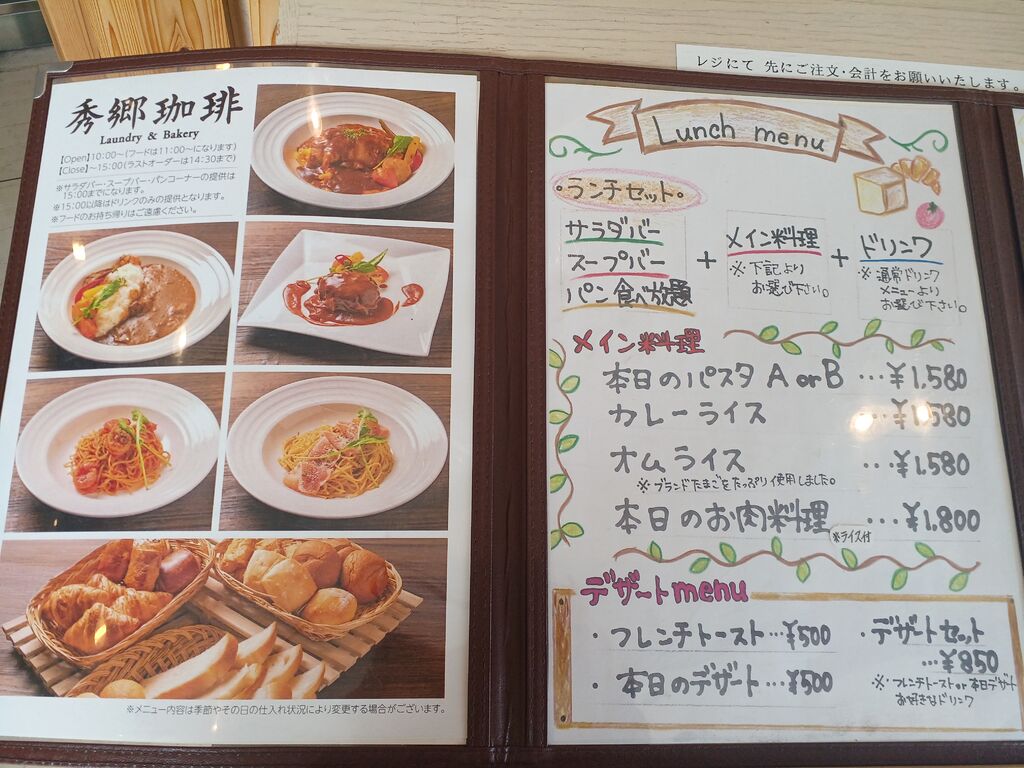 秀郷珈琲
Laundry & Bakery
【Open】10:00〜(フードは11:00〜になります)
【Close】〜15:00(ラストオーダーは14:30まで)
※サラダバー・スープバー・パンコーナーの提供は
15:00までになります。
※15:00以降はドリンクのみの提供となります。
※フードのお持ち帰りはご遠慮ください。
※メニュー内容は季節やその日の仕入れ状況により変更する場合がございます。
レジにて 先にご注文・会計をお願いいたします。
Lunch menu
・ランチセット・
サラダバー
スープバー
パン食べ放題
+
メイン料理
※下記より
お選び下さい。
+
ドリンク
※通常ドリンク
メニューより
お選び下さい。
メイン料理
本日のパスタ A or B …¥1,580
カレーライス …¥1,580
オムライス …¥1,580
※ブランドたまごをたっぷり使用しました。
本日のお肉料理 …¥1,800
※ライス付
デザートmenu
・フレンチトースト…¥500
・本日のデザート…¥500
・デザートセット
…¥850
※・フレンチトーストor本日デザート
お好きなドリンク